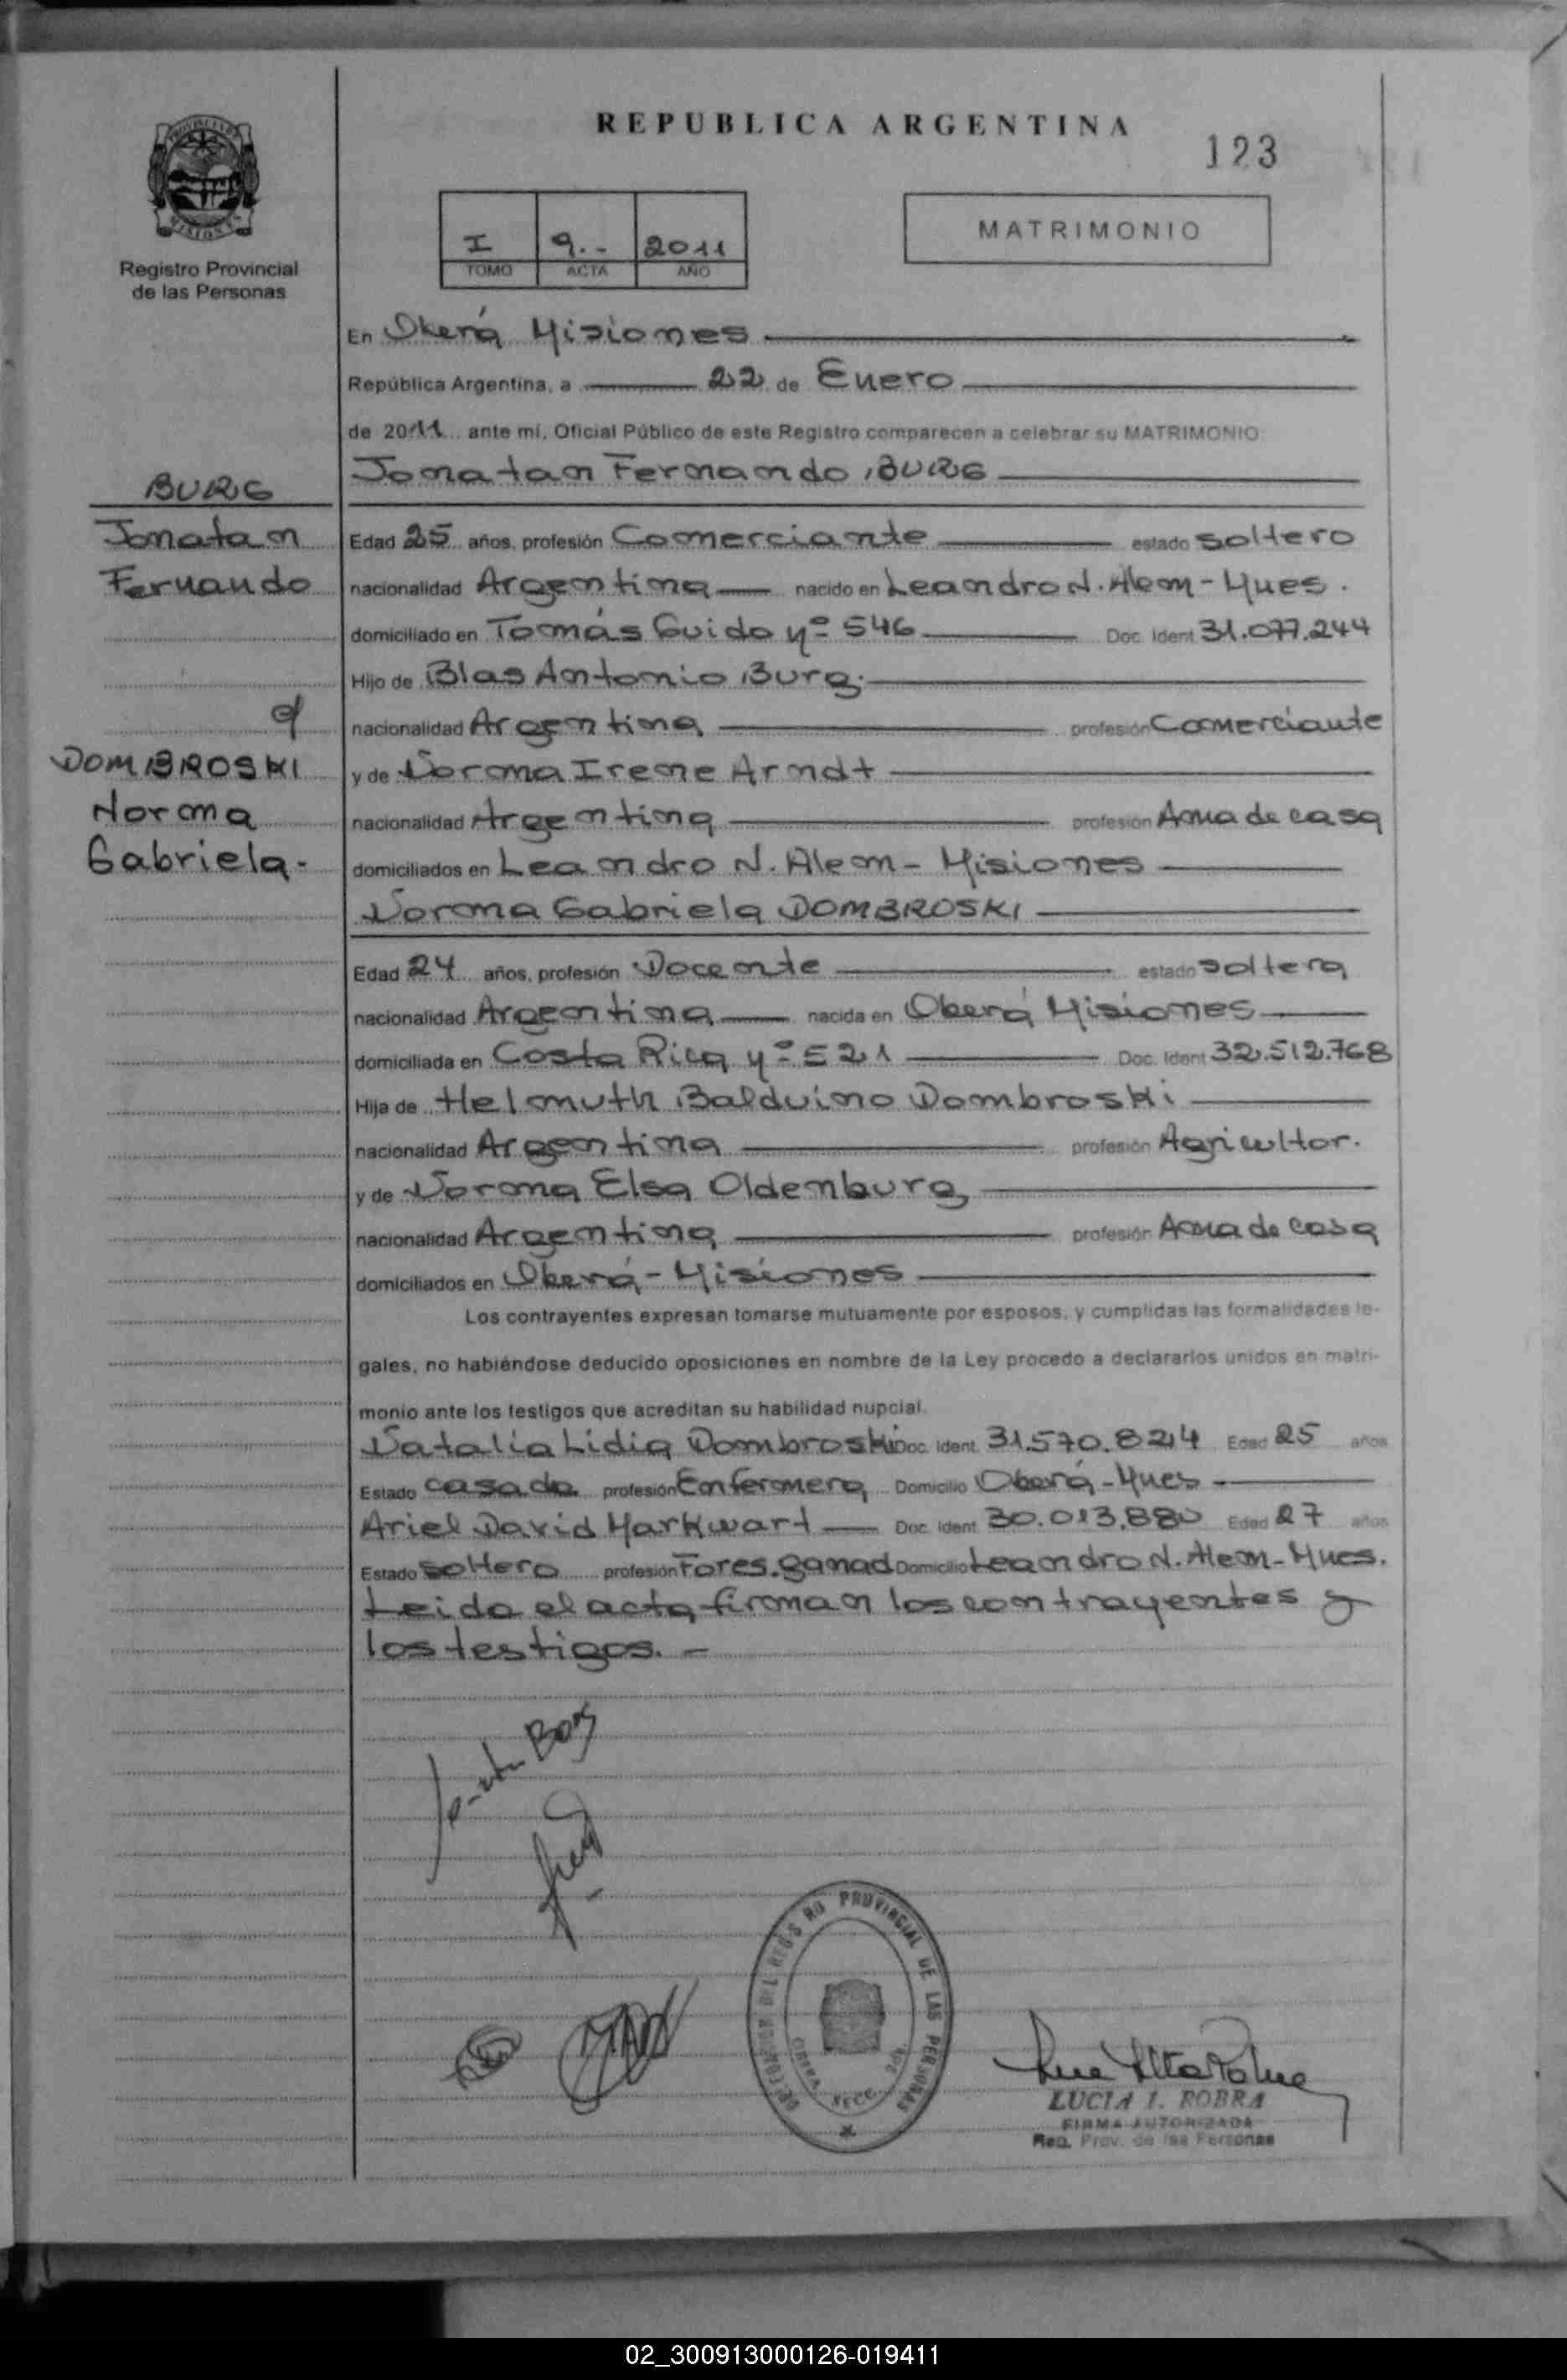 REPUBLICA ARGENTINA
123
PROVINCIA DE
MISIONES
Registro Provincial
de las Personas
I 9.- 2011
TOMO ACTA AÑO
MATRIMONIO
En Oberá Misiones
República Argentina, a 22 de Enero
de 2011 ante mí, Oficial Público de este Registro comparecen a celebrar su MATRIMONIO
Jonatan Fernando BURG
BURG
Jonatan
Fernando
Edad 25 años, profesión Comerciante estado soltero
nacionalidad Argentina nacido en Leandro N. Alem - Mnes.
domiciliado en Tomás Guido Nº 546 Doc. Ident 31.077.244
Hijo de Blas Antonio Burg.
nacionalidad Argentina profesión Comerciante
y de Norma Irene Arndt
nacionalidad Argentina profesión Ama de casa
domiciliados en Leandro N. Alem - Misiones
Norma Gabriela DOMBROSKI
DOMBROSKI
Norma
Gabriela.-
Edad 24 años, profesión Docente estado soltera
nacionalidad Argentina nacida en Oberá Misiones
domiciliada en Costa Rica Nº 521 Doc. Ident 32.512.768
Hija de Helmuth Balduino Dombroski
nacionalidad Argentina profesión Agricultor.
y de Norma Elsa Oldenburg
nacionalidad Argentina profesión Ama de casa
domiciliados en Oberá - Misiones
Los contrayentes expresan tomarse mutuamente por esposos, y cumplidas las formalidades le-
gales, no habiéndose deducido oposiciones en nombre de la Ley procedo a declararlos unidos en matri-
monio ante los testigos que acreditan su habilidad nupcial.
Natalia Lidia Dombroski Doc. Ident. 31.570.824 Edad 25 años
Estado casada profesión Enfermera Domicilio Oberá - Mnes
Ariel David Markwart Doc. Ident. 30.013.880 Edad 27 años
Estado soltero profesión Fores. ganad Domicilio Leandro N. Alem - Mnes.
Leida el acta firman los contrayentes y
los testigos. -
PROVINCIAL DE LAS PERSONAS
SECC.
LUCIA I. ROBRA
FIRMA AUTORIZADA
Reg. Prov. de las Personas
02_300913000126-019411